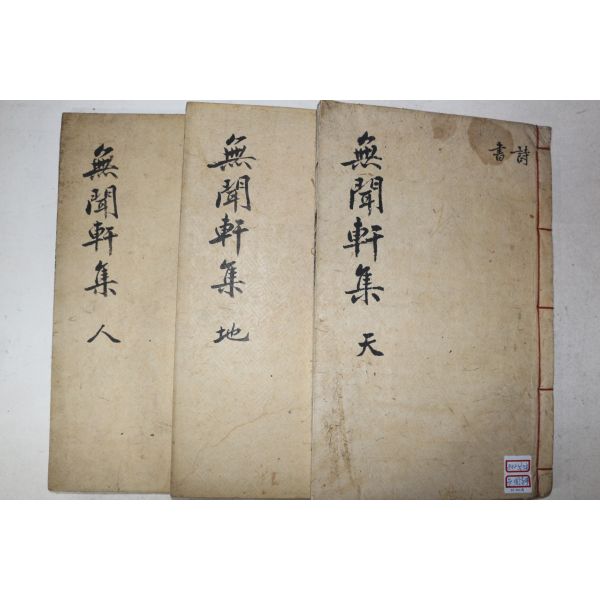 無聞軒集 天
詩
書
無聞軒集 地
無聞軒集 人